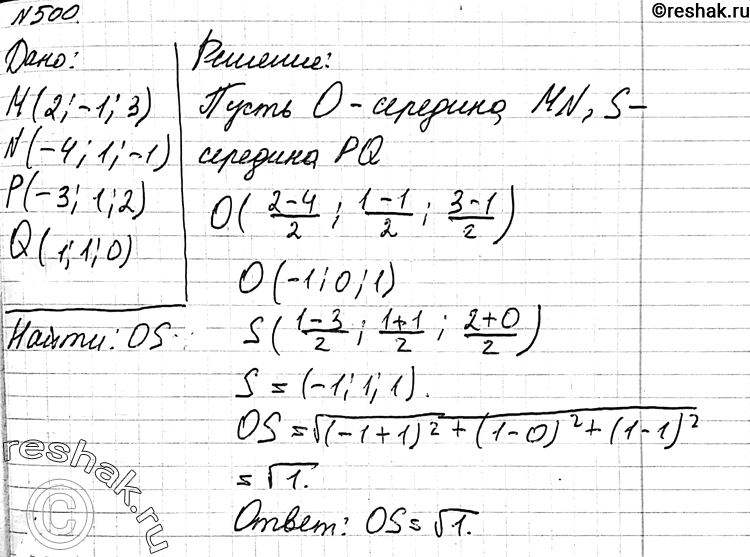 ©reshak.ru
N500.
Дано:
M(2; -1; 3)
N(-4; 1; -1)
P(-3; 1; 2)
Q(1; 1; 0)
Найти: OS.
Решение:
Пусть O - середина MN, S -
середина PQ
O( (2-4)/2 ; (1-1)/2 ; (3-1)/2 )
O(-1; 0; 1)
S( (1-3)/2 ; (1+1)/2 ; (2+0)/2 )
S = (-1; 1; 1).
OS = √((-1+1)² + (1-0)² + (1-1)²)
= √1.
Ответ: OS = √1.
reshak.ru